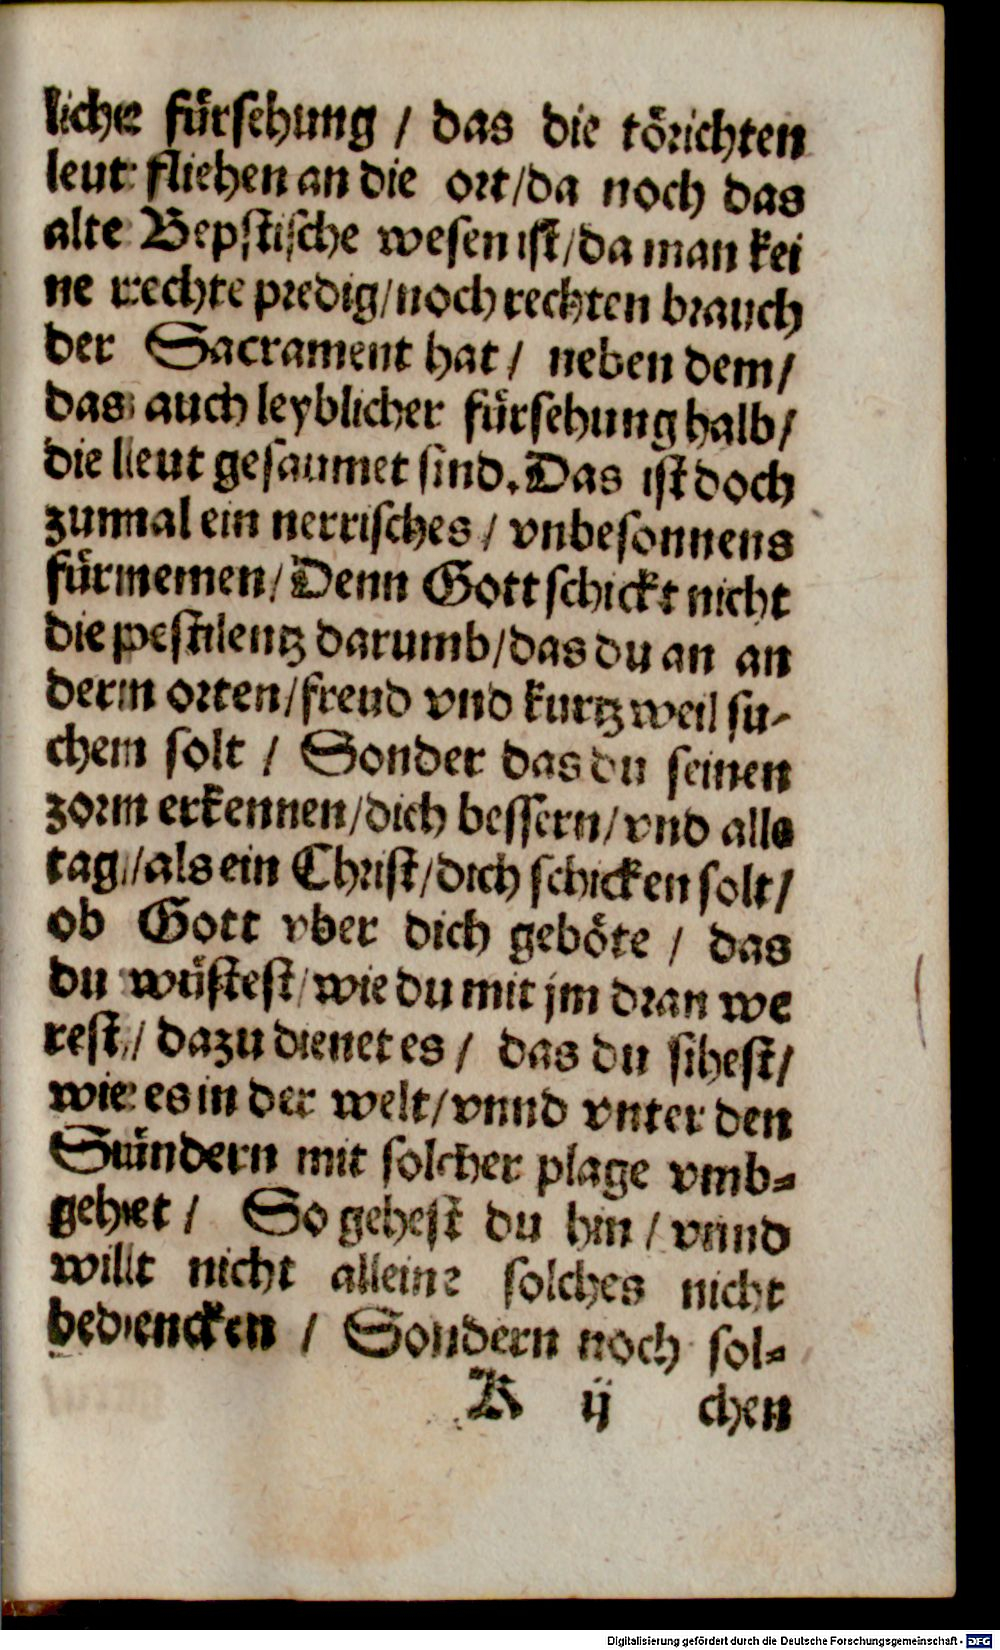 liche fürsehung / das die törichten
leut fliehen an die ort/da noch das
alte Bepstische wesen ist/da man kei
ne rechte predig/noch rechten brauch
der Sacrament hat / neben dem/
das auch leyblicher fürsehung halb/
die leut gesaumet sind. Das ist doch
zumal ein nerrisches / vnbesonnens
fürnemen/Denn Gott schickt nicht
die pestilentz darumb/das du an an
dern orten/freud vnd kurtzweil su-
chen solt / Sonder das du seinen
zorn erkennen/dich bessern/vnd alle
tag/als ein Christ/dich schicken solt/
ob Gott vber dich geböte / das
du wüstest/wie du mit jm dran we
rest/ dazu dienet es / das du sihest/
wie es in der welt/vnnd vnter den
Sündern mit solcher plage vmb-
gehet / So gehest du hin / vnnd
willt nicht alleine solches nicht
bedencken / Sondern noch sol-
K ij chen
Digitalisierung gefördert durch die Deutsche Forschungsgemeinschaft - DFG